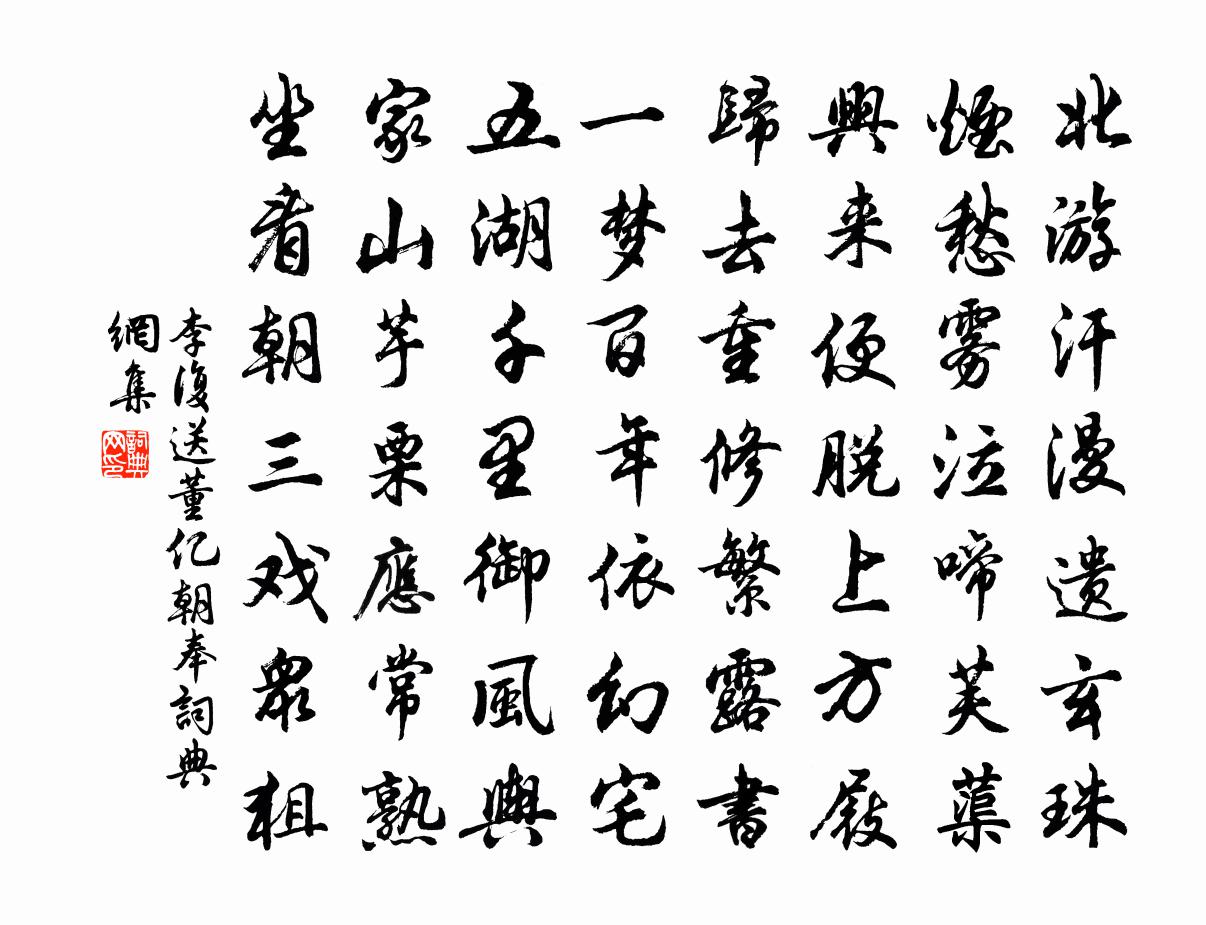 北游汗漫遗玄珠
煙愁雾泣啼芙蕖
興来便脱上方屐
歸去重修繁露書
一梦百年依幻宅
五湖千里御風輿
家山芋栗應常熟
坐看朝三戏眾狙
李復送董亿朝奉詞典
網集
詞典
网印